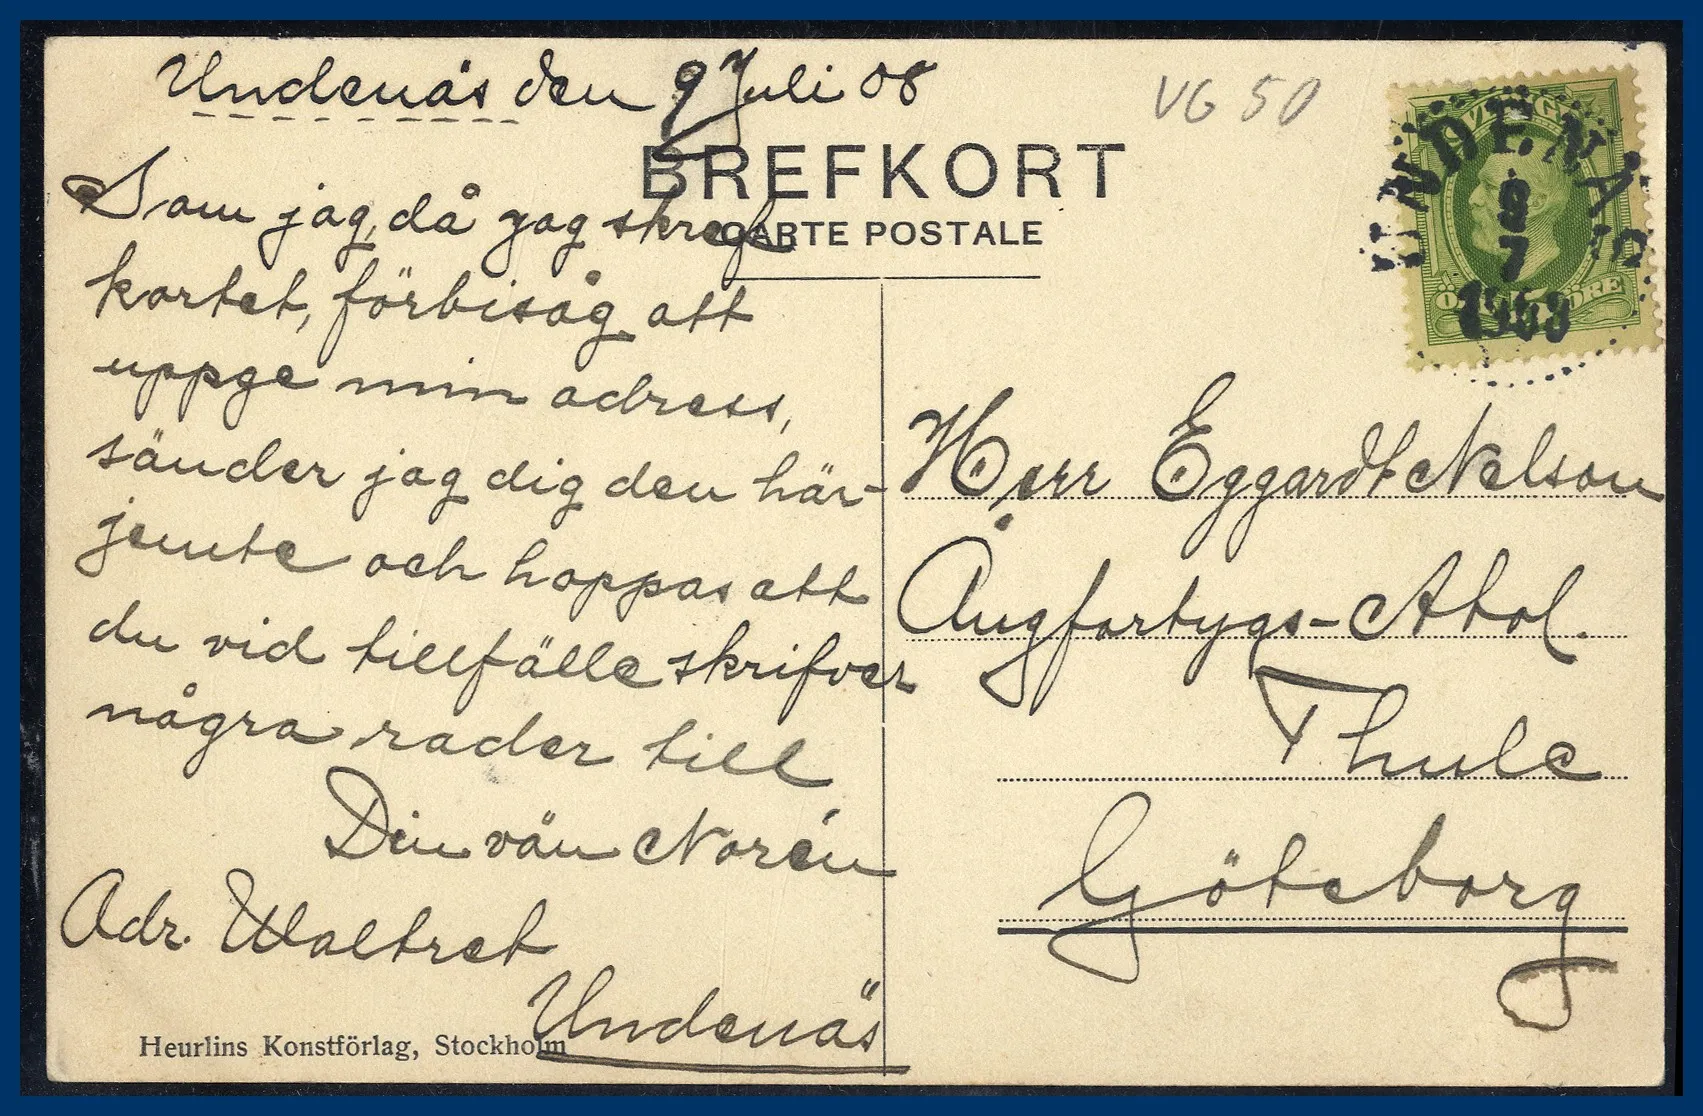 Undenäs den 9 Juli 08
VG 50
BREFKORT
CARTE POSTALE
SVERIGE
UNDENÄS
9
7
1908
ÖRE
Som jag, då jag skref
kortet, förbisåg att
uppge min adress,
sänder jag dig den här-
jemte och hoppas att
du vid tillfälle skrifver
några rader till
Din vän Norén
Adr. Waltret
Undenäs
Herr Eggardt Nelson
Ångfartygs-Aktbol.
Thule
Göteborg
Heurlins Konstförlag, Stockholm